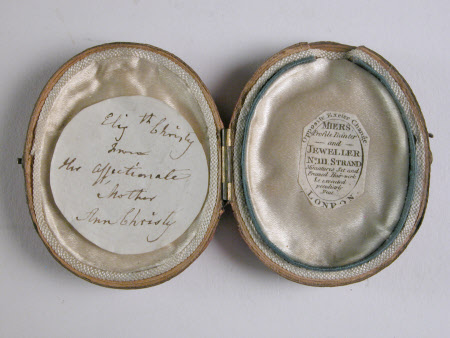 Eliz th Chrisly
from
Her affectionate
Mother
Ann Chrisly
Opposite Exeter Change
MIERS
Profile Painter
and
JEWELLER
No. 111 STRAND
Miniatures Set and
LONDON